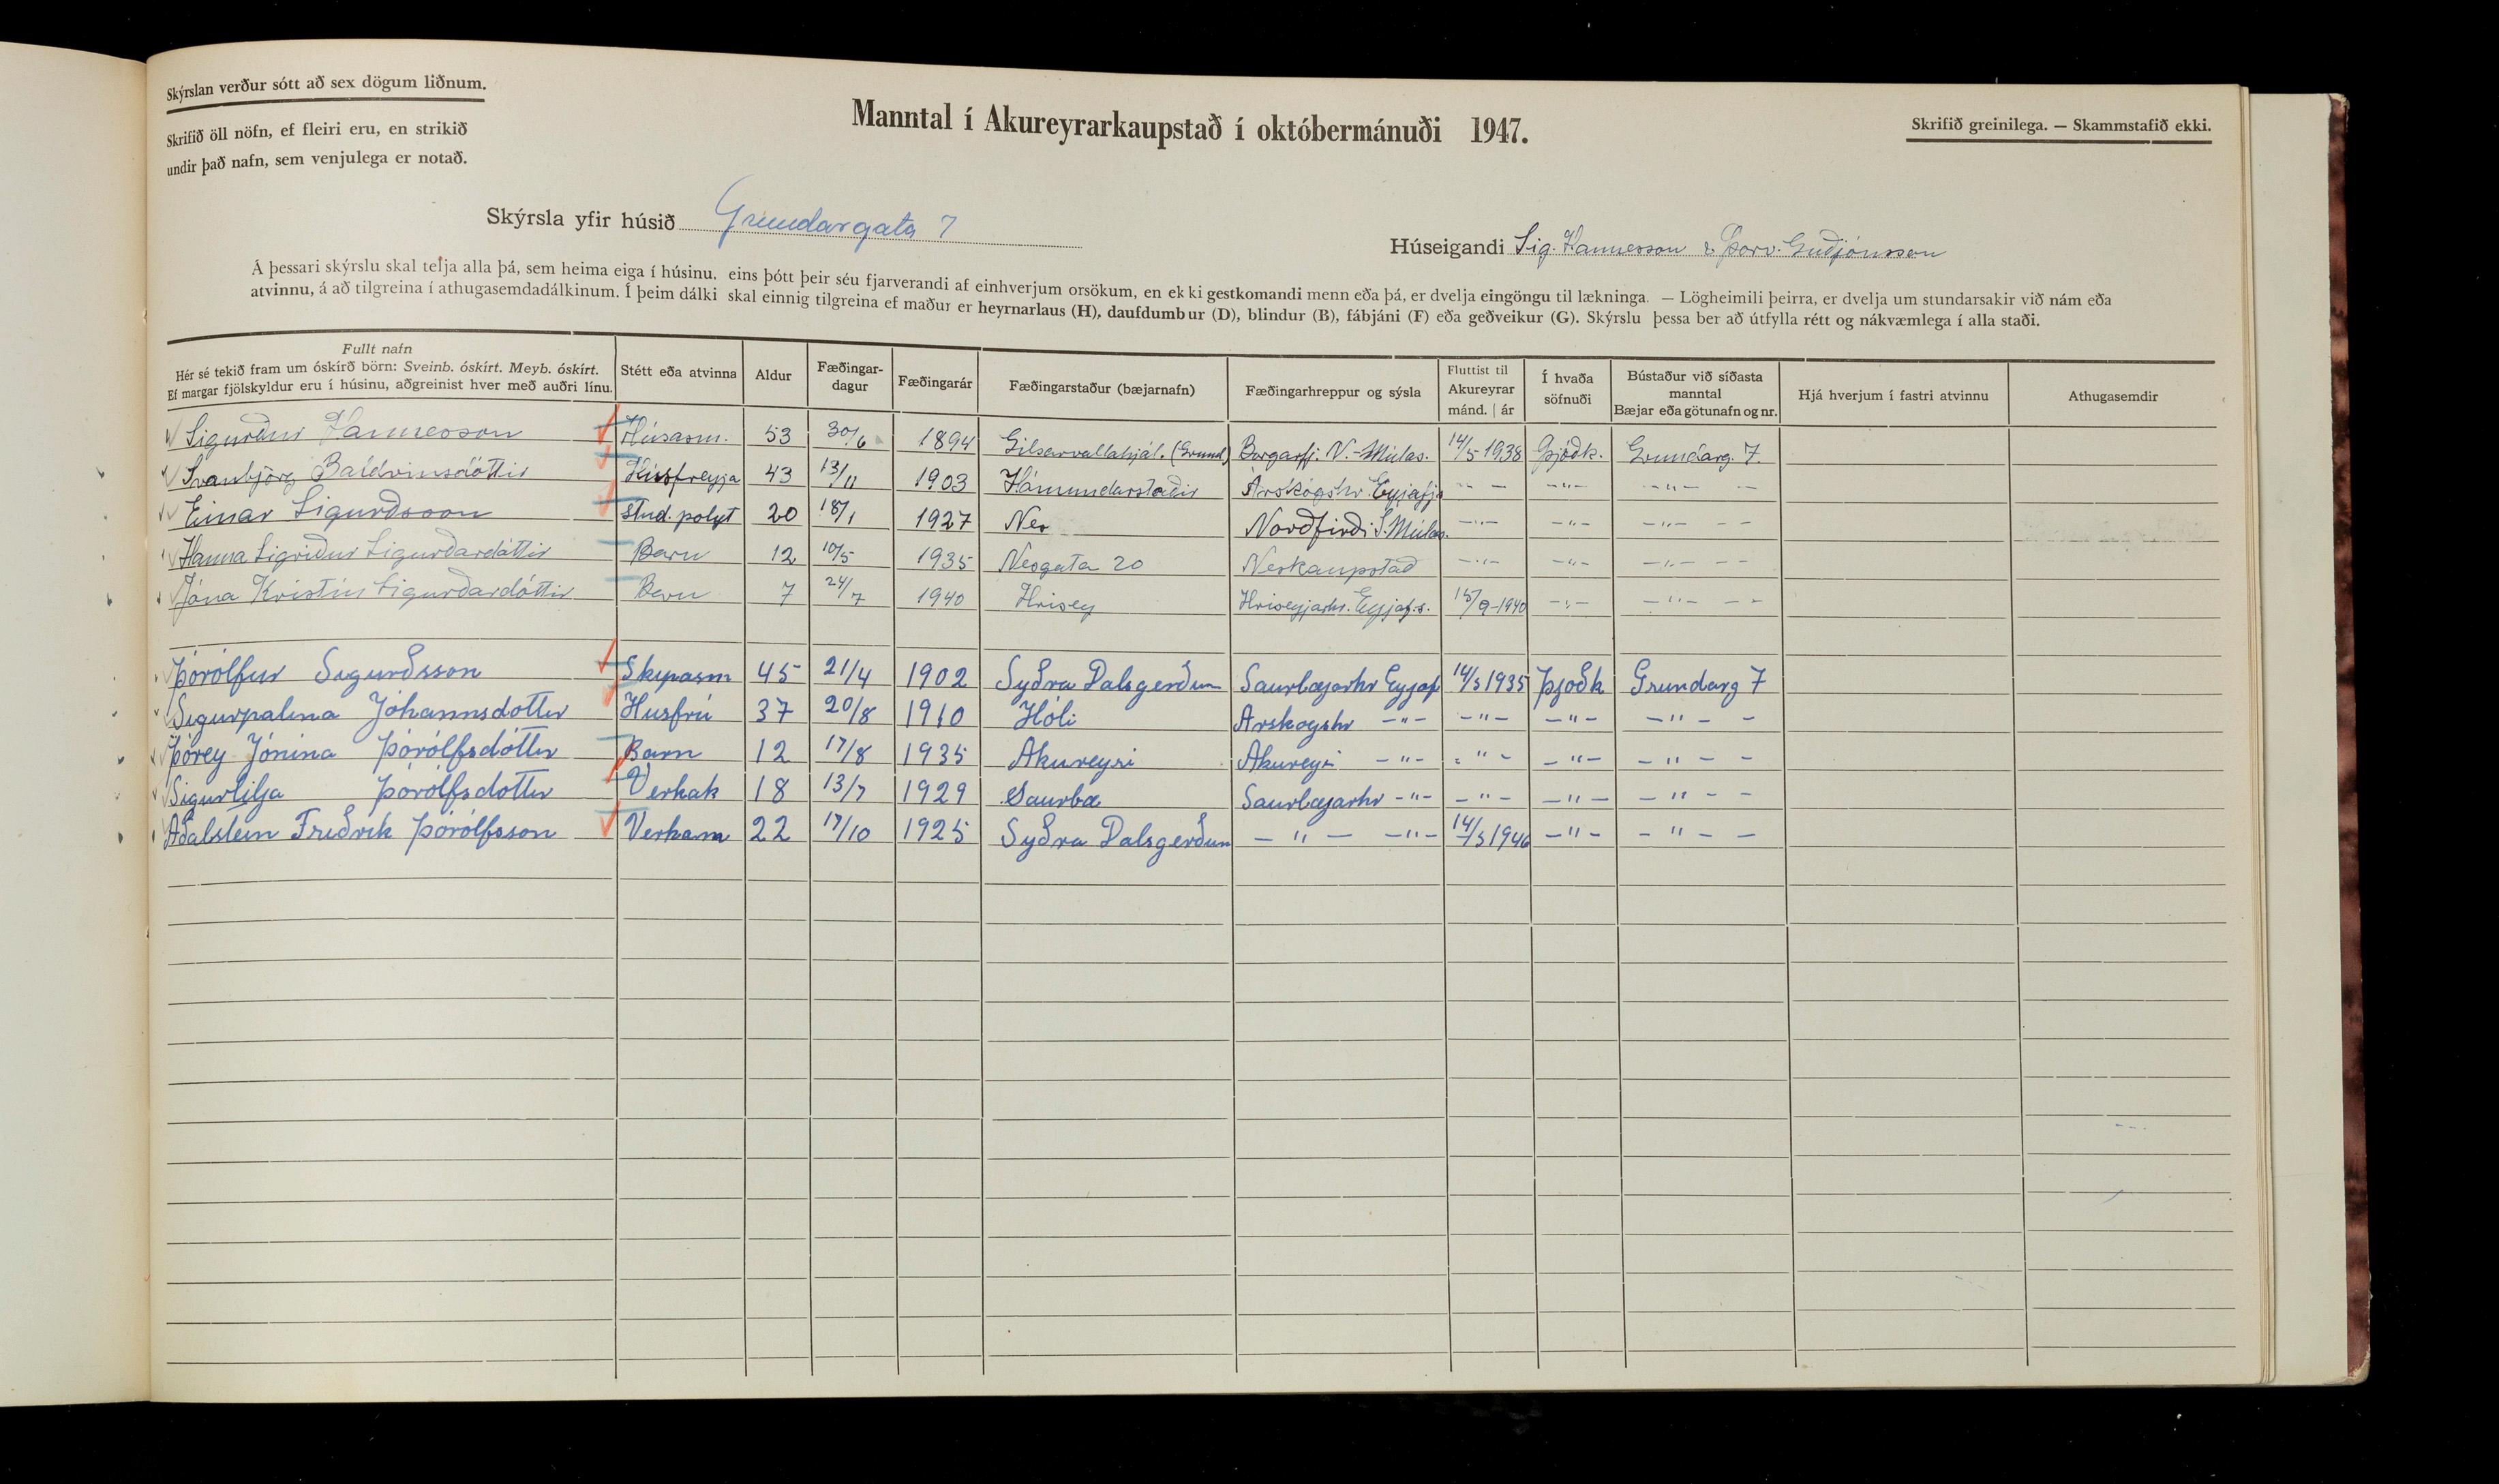 Skýrslan verður sótt að sex dögum liðnum.
Skrifið öll nöfn, ef fleiri eru, en strikið
undir það nafn, sem venjulega er notað.
Manntal í Akureyrarkaupstað í októbermánuði 1947.
Skrifið greinilega. — Skammstafið ekki.
Skýrsla yfir húsið Grundargata 7
Húseigandi Sig. Hannesson & Þorv. Guðjónsson
Á þessari skýrslu skal telja alla þá, sem heima eiga í húsinu, eins þótt þeir séu fjarverandi af einhverjum orsökum, en ekki gestkomandi menn eða þá, er dvelja eingöngu til lækninga. — Lögheimili þeirra, er dvelja um stundarsakir við nám eða
atvinnu, á að tilgreina í athugasemdadálkinum. Í þeim dálki skal einnig tilgreina ef maður er heyrnarlaus (H), daufdumbur (D), blindur (B), fábjáni (F) eða geðveikur (G). Skýrslu þessa ber að útfylla rétt og nákvæmlega í alla staði.
Fullt nafn
Hér sé tekið fram um óskírð börn: Sveinb. óskírt. Meyb. óskírt.
Ef margar fjölskyldur eru í húsinu, aðgreinist hver með auðri línu.
Stétt eða atvinna
Aldur
Fæðingar-
dagur
Fæðingarár
Fæðingarstaður (bæjarnafn)
Fæðingarhreppur og sýsla
Fluttist til
Akureyrar
mánd. | ár
Í hvaða
söfnuði
Bústaður við síðasta
manntal
Bæjar eða götunafn og nr.
Hjá hverjum í fastri atvinnu
Athugasemdir
Sigurður Hannesson Húsasm. 53 30/6 1894 Gilsarvallahjál. (Grund) Borgarfj. N.-Múlas. 14/5 1938 Þjóðk. Grundarg. 7.
Svanbjörg Baldvinsdóttir Húsfreyja 43 13/11 1903 Hámundarstaðir Árskógshr. Eyjafj. — — —"— —"— —
Einar Sigurðsson Stud. polyt 20 18/1 1927 Nes Norðfirði S. Múlas. —"— —"— —"— — —
Hanna Sigríður Sigurðardóttir Barn 12 10/5 1935 Nesgata 20 Neskaupstað —"— —"— —"— — —
Jóna Kristín Sigurðardóttir Barn 7 24/7 1940 Hrísey Hríseyjarhr. Eyjaf.s. 15/9-1940 —"— —"— — —
Þórólfur Sigurðsson Skipasm 45 21/4 1902 Syðra Dalsgerðum Saurbæjarhr Eyjaf 14/5 1935 Þjoðk Grundarg 7
Sigurpalína Jóhannsdottir Húsfrú 37 20/8 1910 Hóli Arskogshr —"— —"— —"— —"— —
Þórey Jónína Þórólfsdóttir Barn 12 17/8 1935 Akureyri Akureyri —"— —"— —"— —"— —
Sigurlilja Þórólfsdottir Verkak 18 13/7 1929 Saurbæ Saurbæjarhr —"— —"— —"— —"— —
Aðalstein Friðrik Þórólfsson Verkam 22 17/10 1925 Syðra Dalsgerðum —"— —"— 14/5 1946 —"— —"— —